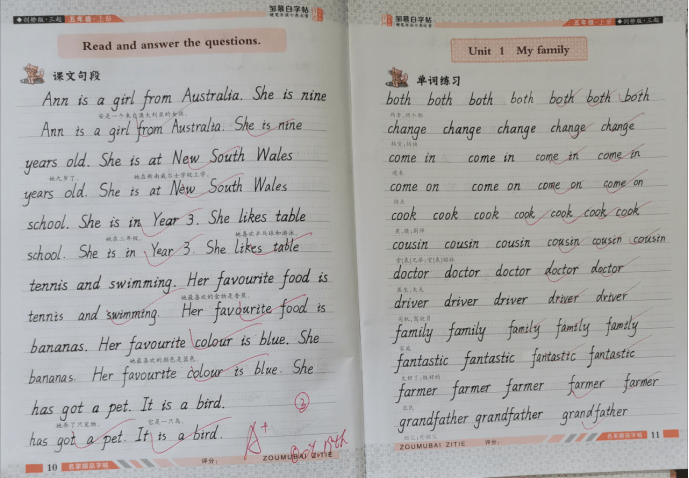 邹慕白字帖
剑桥版·三起 五年级·上册
Read and answer the questions.
课文句段
Ann is a girl from Australia. She is nine
安是一个来自澳大利亚的女孩。
Ann is a girl from Australia. She is nine
years old. She is at New South Wales
她九岁了。 她在新南威尔士学校上学。
years old. She is at New South Wales
school. She is in Year 3. She likes table
她在三年级。 她喜欢乒乓球和游泳。
school. She is in Year 3. She likes table
tennis and swimming. Her favourite food is
她最喜欢的食物是香蕉。
tennis and swimming. Her favourite food is
bananas. Her favourite colour is blue. She
她最喜欢的颜色是蓝色。
bananas. Her favourite colour is blue. She
has got a pet. It is a bird.
她养了只宠物。 它是一只鸟。
has got a pet. It is a bird.
A+
10 名家精品字帖 评分: ZOUMUBAI ZITIE
邹慕白字帖
五年级·上册 剑桥版·三起
Unit 1 My family
单词练习
both both both both both both both
两者,两个都
change change change change change
转变;转换
come in come in come in come in
进来
come on come on come on come on
cook cook cook cook cook cook
cousin cousin cousin cousin cousin cousin
doctor doctor doctor doctor doctor
医生,大夫
driver driver driver driver driver
司机,驾驶员
family family family family family
家庭
fantastic fantastic fantastic fantastic
farmer farmer farmer farmer farmer
农民
grandfather grandfather grandfather
ZOUMUBAI ZITIE 评分: 名家精品字帖 11